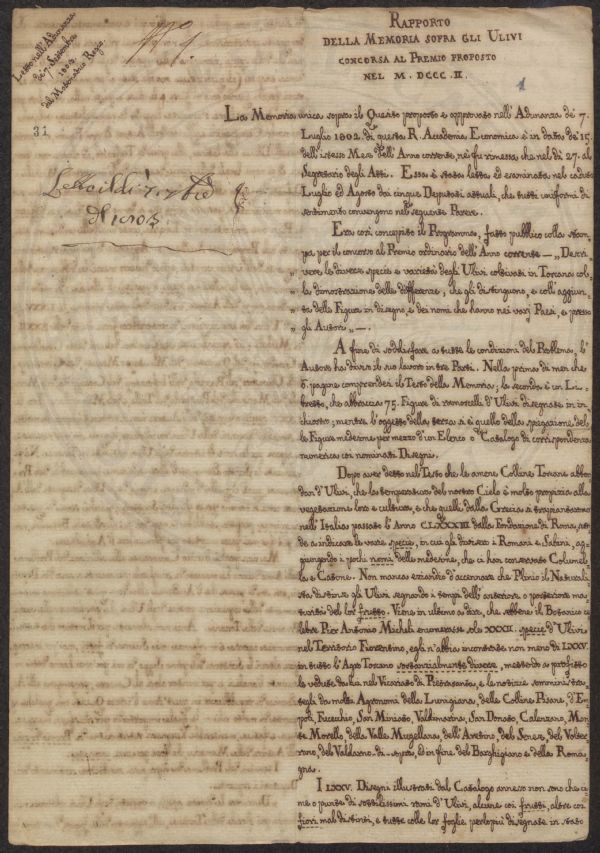 Letto nell'Adunanza
de' 7. Settembre
1803.
del Ma Regis.
31
Letto il dì 7. 7bre
1803
1
Rapporto
della Memoria sopra gli Ulivi
concorsa al Premio proposto
nel M. DCCC. II.
La Memoria unica sopra il Quesito proposto e approvato nell'Adunanza de' 7.
Luglio 1802. di questa R. Accademia Economica è in data de' 15.
dell'istesso Mese dell'Anno corrente, nè fu rimessa che nel dì 27. al
Segretario degli Atti. Essa è stata letta ed esaminata nel caduto
Luglio ed Agosto dai cinque Deputati attuali, che tutti uniformi di
sentimento convengono nel seguente Parere.
Era così concepito il Programma, fatto pubblico colla stam=
pa per il concorso al Premio ordinario dell'Anno corrente — „ Descri=
„ vere le diverse specie e varietà degli Ulivi coltivati in Toscana col=
„ la dimostrazione delle differenze, che gli distinguono, e coll'aggiun=
„ ta delle Figure in disegno, e dei nomi che hanno nei varj Paesi, e presso
„ gli Autori „ —.
A fine di soddisfare a tutte le condizioni del Problema, l'
Autore ha diviso il suo lavoro in tre Parti. Nella prima di men che
6. pagine comprendesi il Testo della Memoria; la seconda è un Li=
bretto, che abbraccia 75. Figure di ramoscelli d'Ulivi disegnate in in=
chiostro; mentre l'oggetto della terza si è quello della spiegazione del=
le Figure medesime per mezzo d'un Elenco o Catalogo di corrispondenza
numerica coi nominati Disegni.
Dopo aver detto nel Testo che le amene Colline Toscane abbon=
dan d'Ulivi, che la temperatura del nostro Cielo è molto propizia alla
vegetazione loro e cultura, e che quelle dalla Grecia si trapiantarono
nell'Italia passato l'Anno CLXXXIII dalla Fondazione di Roma, scen=
de a indicare le varie specie, in cui gli divisero i Romani e Sabini, ag=
giungendo i pochi nomi delle medesime, che ci han conservato Columel=
la e Catone. Non manca eziandio d'accennare che Plinio il Naturali=
sta distinse gli Ulivi segnando i tempi dell'anteriore o posteriore ma=
turità del lor frutto. Viene in ultimo a dire, che sebbene il Botanico ce=
lebre Pier Antonio Micheli enumerasse sole XXXII. specie d'Ulivi
nel Territorio Fiorentino, egli n'abbia incontrate non meno di LXXV.
in tutto l'Agro Toscano sostanzialmente diverse, mettendo a profitto
le vedute da lui nel Vicariato di Pietrasanta, e le notizie sommini stra=
tegli da molti Agronomi della Lunigiana, delle Colline Pisane, d'Em=
poli, Fucecchio, San Miniato, Valdimarina, San Donato, Calenzano, Mon=
te Morello, della Valle Mugellana, dell'Aretino, del Senese, del Volter=
rano, del Valdarno-di-sopra, ed in fine del Barghigiano e della Roma=
gna.
I LXXV. Disegni illustrati dal Catalogo annesso non sono che ci=
me o punte di sottilissimi rami d'Ulivi, alcune coi frutti, altre coi
fiori mal distinti, e tutte colle lor foglie perlopiù disegnate in stato